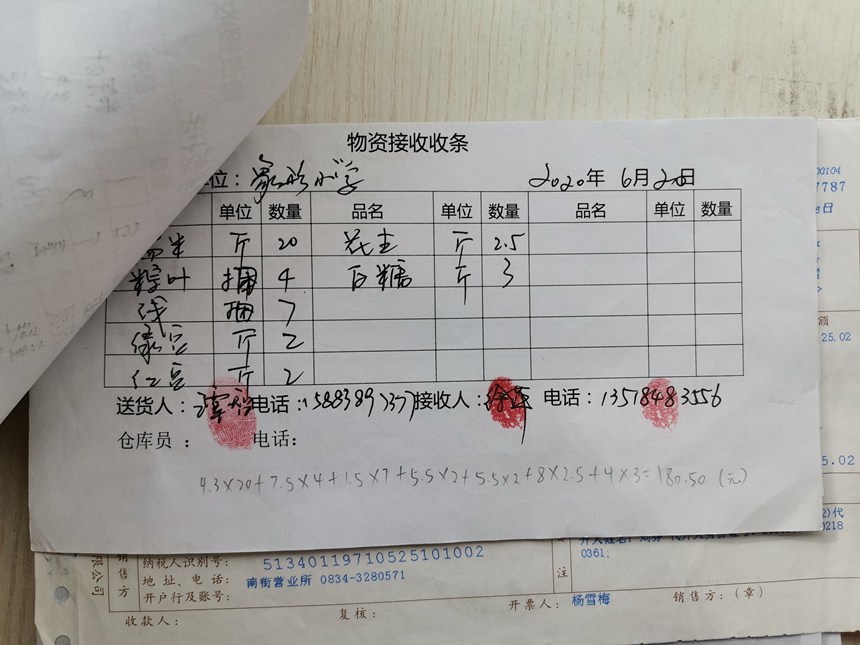 物资接收收条
位：象形小学 2020年 6月20日
单位 数量 品名 单位 数量 品名 单位 数量
米 斤 20 花生 斤 2.5
粽叶 捆 4 白糖 斤 3
线 捆 7
绿豆 斤 2
红豆 斤 2
送货人： 电话：15883891377 接收人： 电话：13518483556
仓库员 ： 电话：
4.3×20+7.5×4+1.5×7+5.5×2+5.5×2+8×2.5+4×3=180.50（元）
00104
7787
日
额
25.02
5.02
限公司
销售方
纳税人识别号： 51340119710525101002
地 址、电 话： 南街营业所 0834-3280571
开户行及账号：
注
0218
0361;
收款人： 复核： 开票人： 杨雪梅 销售方：（章）